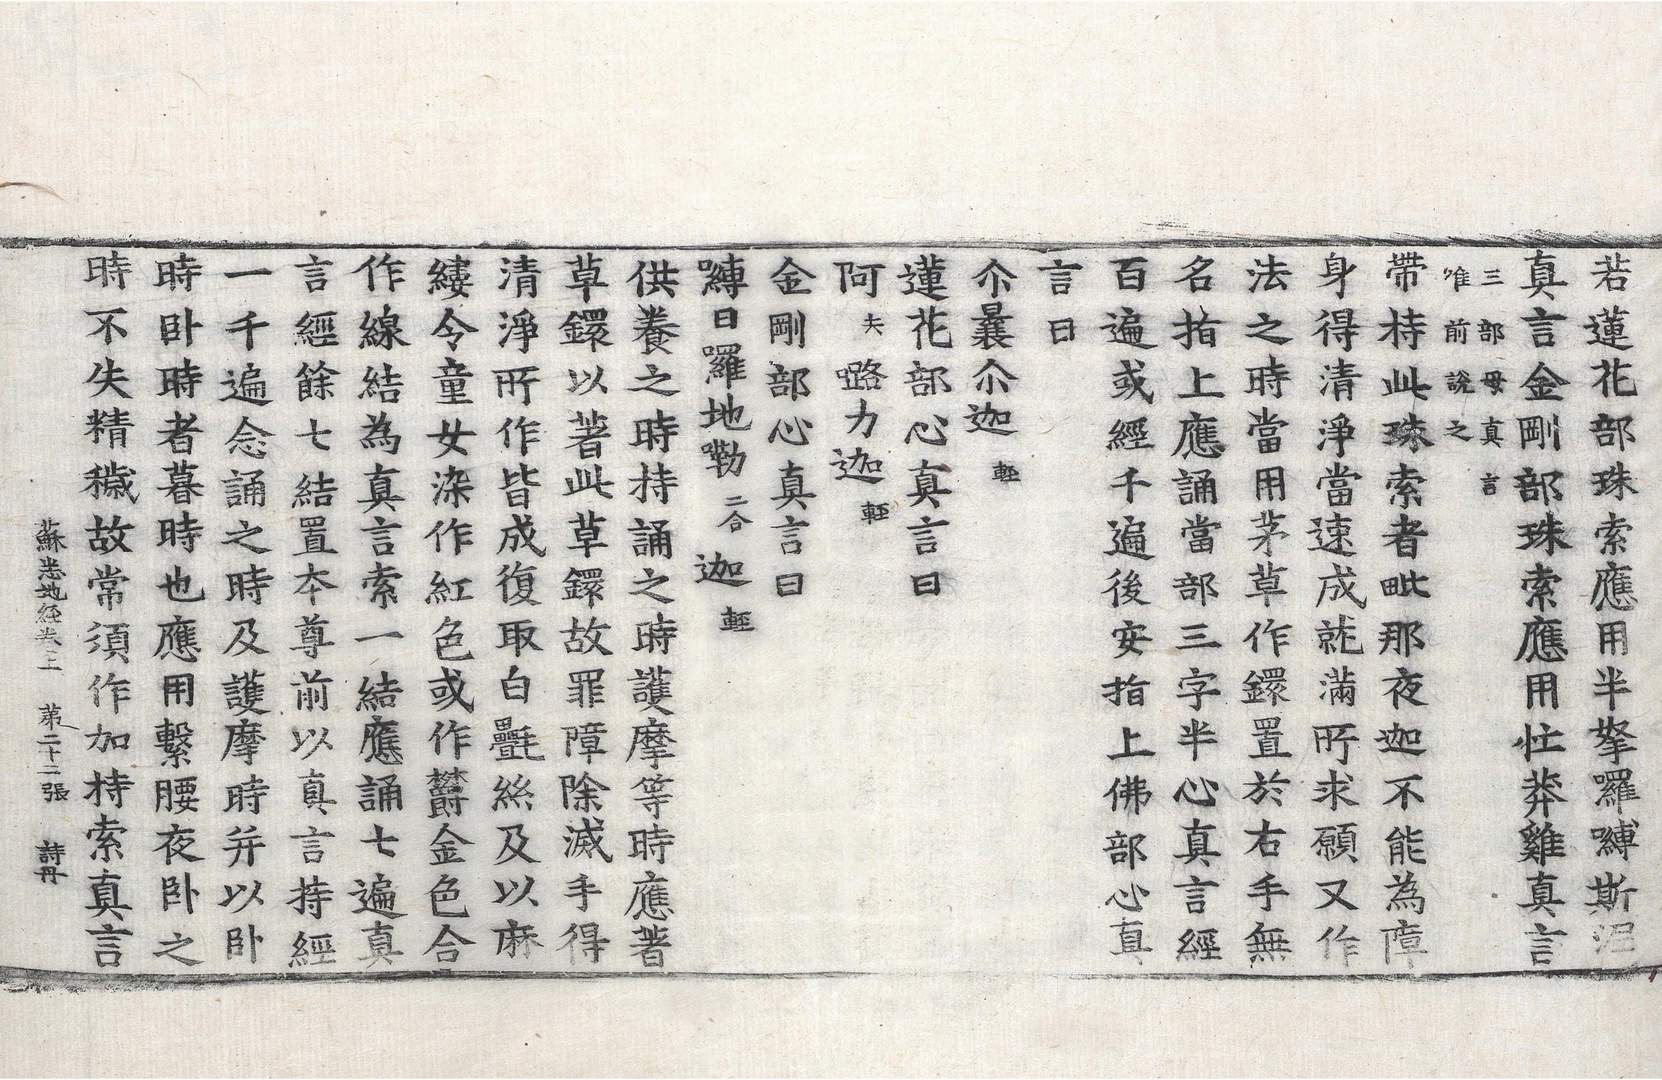 若蓮花部珠索應用半拏囉嚩斯泥
真言金剛部珠索應用忙莽雞真言
三部母真言
唯前說之
帶持此珠索者毗那夜迦不能為障
身得清淨當速成就滿所求願又作
法之時當用茅草作鐶置於右手無
名指上應誦當部三字半心真言經
百遍或經千遍後安指上佛部心真
言曰
尒曩尒迦輕
蓮花部心真言曰
阿夫路力迦輕
金剛部心真言曰
嚩日囉地嘞二合迦輕
供養之時持誦之時護摩等時應著
草鐶以著此草鐶故罪障除滅手得
清淨所作皆成復取白㲲絲及以麻
縷令童女染作紅色或作鬱金色合
作線結為真言索一結應誦七遍真
言經餘七結置本尊前以真言持經
一千遍念誦之時及護摩時并以卧
時卧時者暮時也應用繫腰夜卧之
時不失精穢故常須作加持索真言
蘇悉地經卷上 第二十二張 詩丹